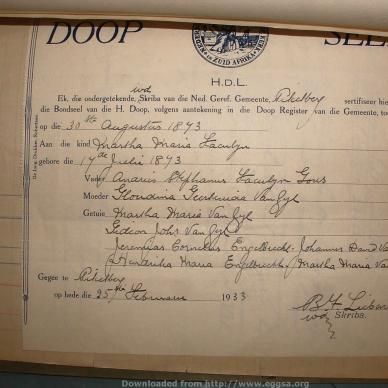 DOOP
IN ZUID AFRIKA
H.D.L.
wd
Ek, die ondergetekende, Skriba van die Ned. Geref. Gemeente, Piketberg sertifiseer
die Bondseel van die H. Doop, volgens aantekening in die Doop Register van die Gemeente,
op die 30ste Augustus 1873
Aan die kind Martha Maria Jacalyn
gebore die 17de Julie 1873
Vader Andries Stephanus Jacalyn Gous
Moeder Gloudina Geertruida Van Zyl
Getuie Martha Maria Van Zyl
Gideon Johs Van Zyl
Jeremias Cornelius Engelbrecht. Johannes
Hendrika Maria Engelbrecht Martha Maria
Gegee te Piketberg
op hede die 25ste Februarie 1933
wd Skriba.
Downloaded from http://www.eggsa.org